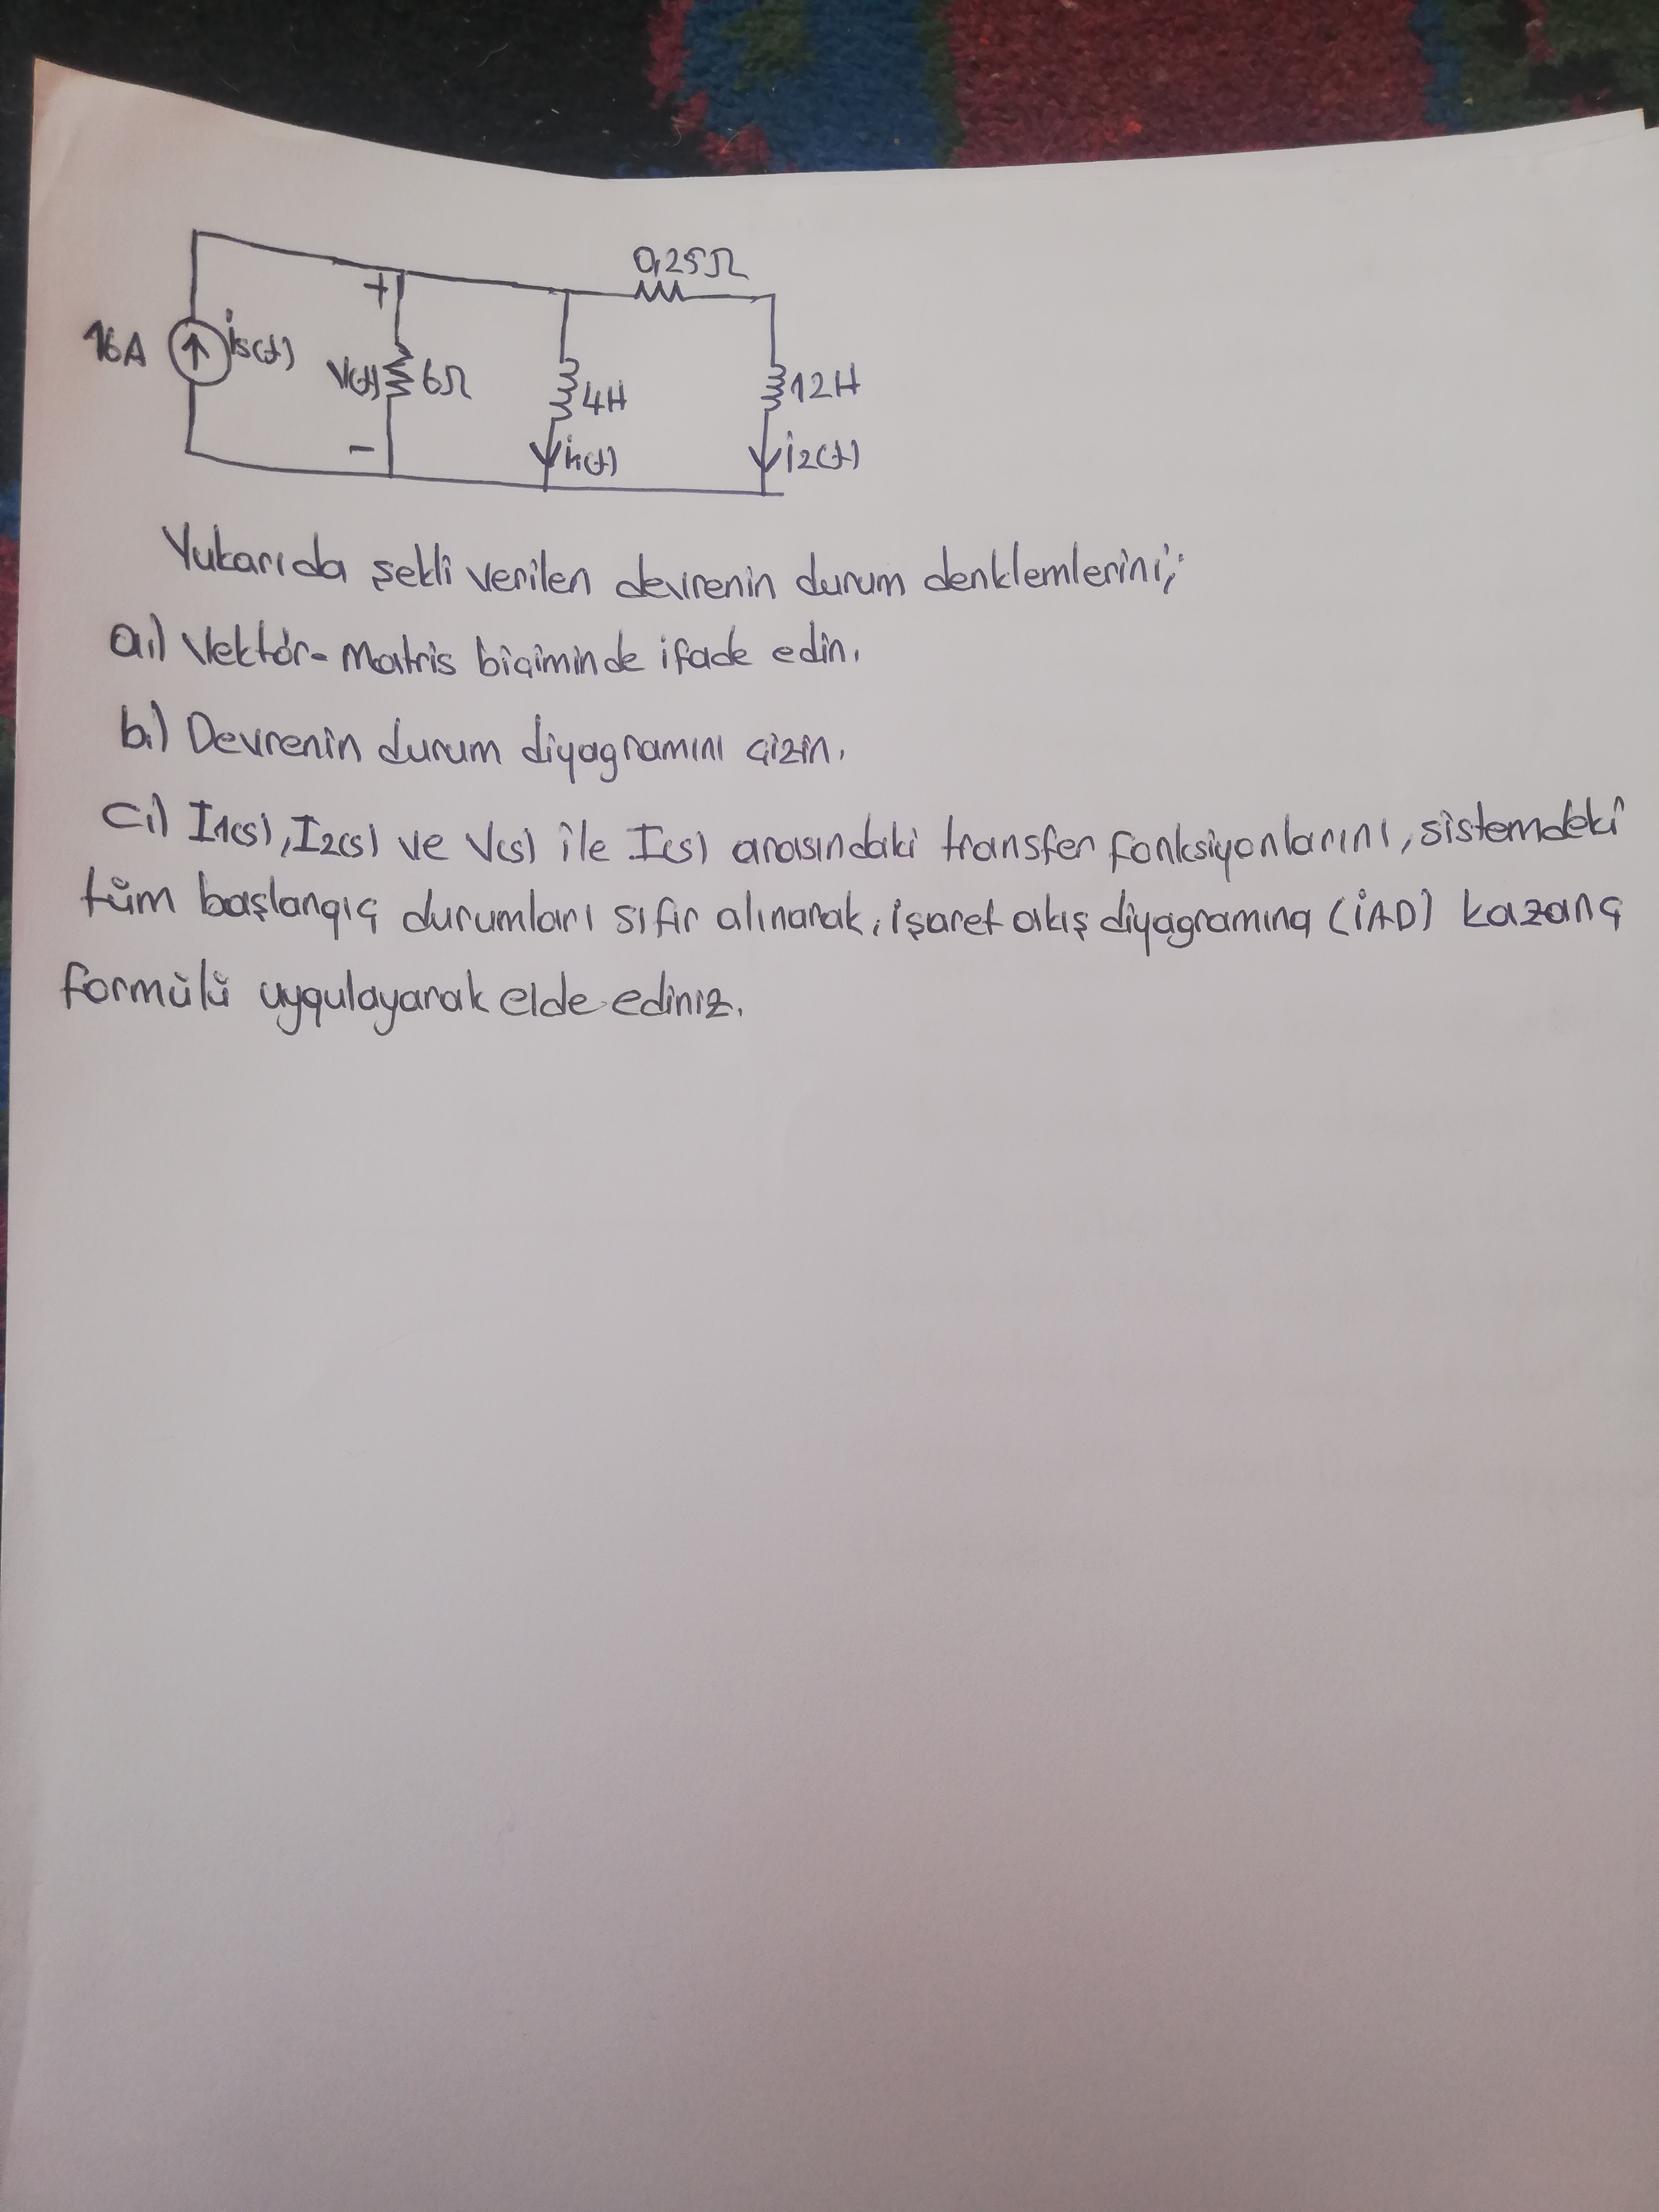 0,25Ω
16A
is(t)
+
V(t)
6Ω
4H
12H
-
i1(t)
i2(t)
Yukarıda şekli verilen devrenin durum denklemlerini;
a.) Vektör-Matris biçiminde ifade edin.
b.) Devrenin durum diyagramını çizin.
c.) I1(s), I2(s) ve V(s) ile I(s) arasındaki transfer fonksiyonlarını, sistemdeki
tüm başlangıç durumları sıfır alınarak, işaret akış diyagramına (İAD) kazanç
formülü uygulayarak elde ediniz.